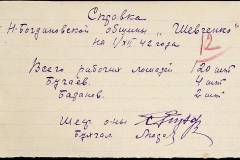 Справка
Н-Богдановской общины "Шевченко"
на 1/XII 42 года
12
Всего рабочих лошадей 120 шт
Бугаев. 4 шт
Баранов. 2 шт
Шеф о-ны